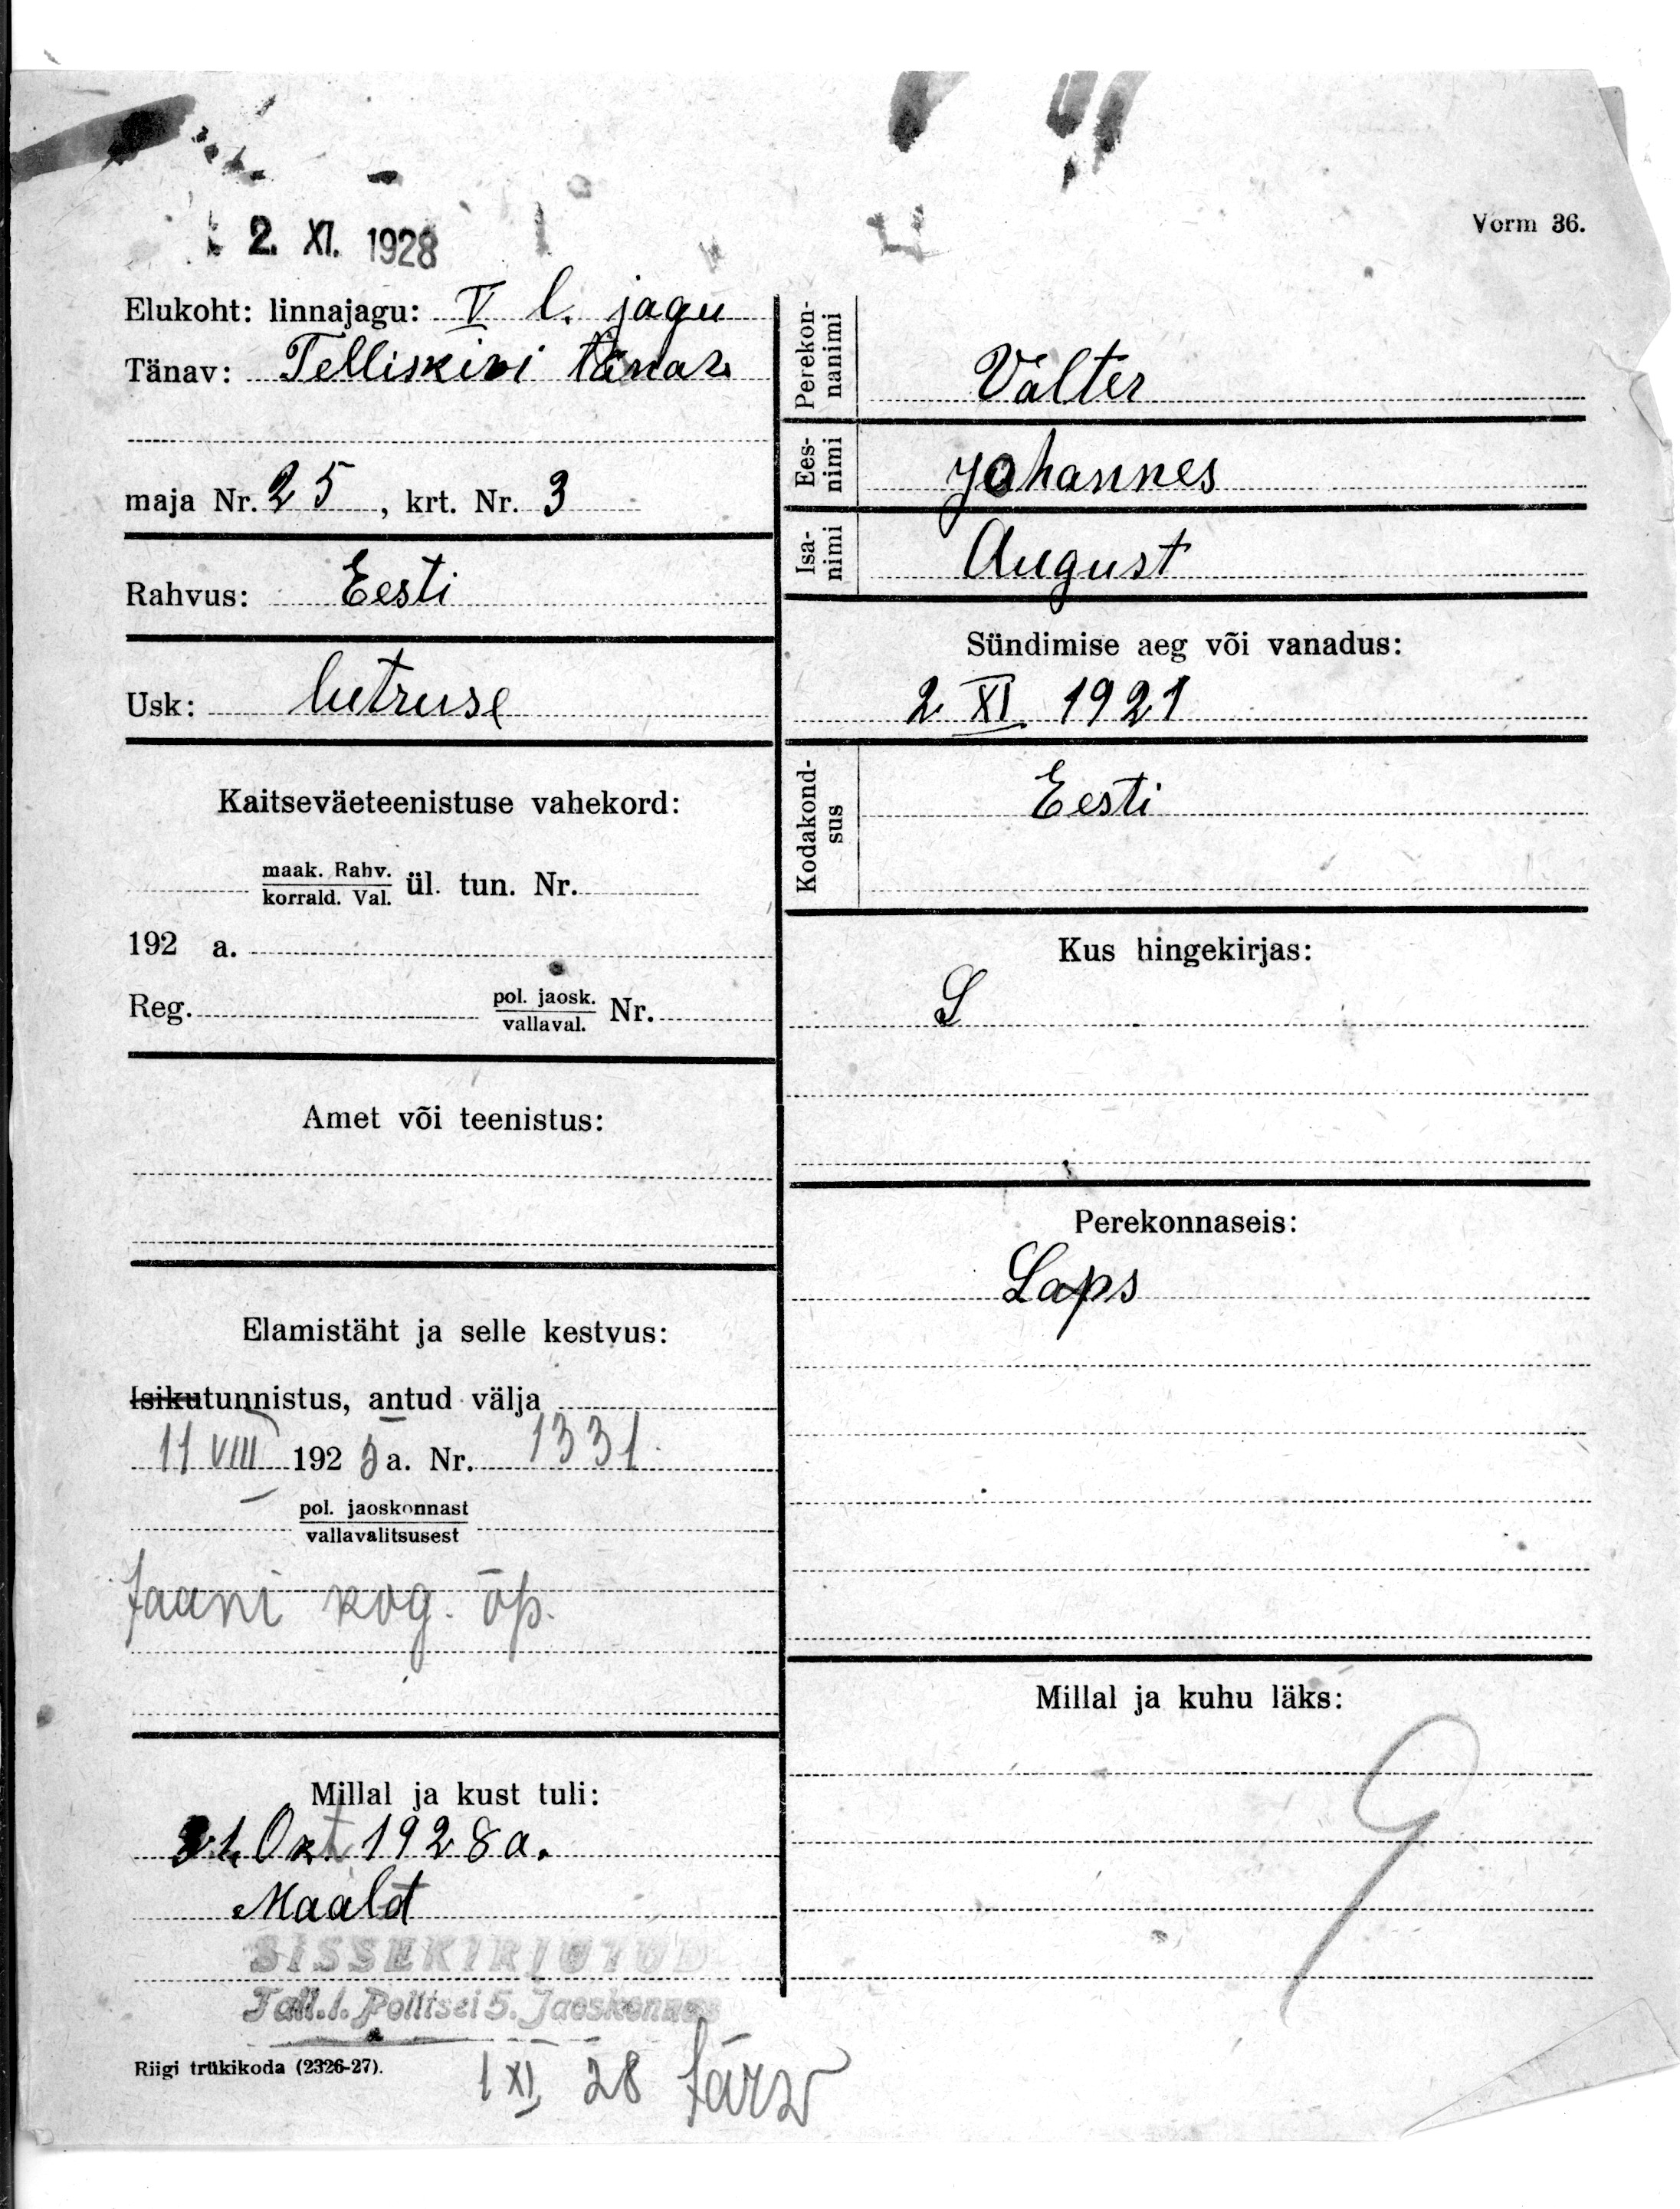 2. XI. 1928
Vorm 36.
Elukoht: linnajagu: V l. jagu
Tänav: Telliskivi tänav
maja Nr. 25, krt. Nr. 3
Rahvus: Eesti
Usk: lutruse
Kaitseväeteenistuse vahekord:
maak. Rahv.
korrald. Val. ül. tun. Nr.
192 a.
Reg. pol. jaosk.
vallaval. Nr.
Amet või teenistus:
Elamistäht ja selle kestvus:
Isikutunnistus, antud välja
11 VIII 192 a. Nr. 1331
pol. jaoskonnast
vallavalitsusest
Jaani kog. õp.
Millal ja kust tuli:
31. Okt 1928 a.
Maalt
SISSEKIRJUTUD
Tall. l. Politsei 5. Jaoskonnas
Riigi trükikoda (2326-27).
1 XI 28
Perekon-
nanimi
Välter
Ees-
nimi
Johannes
Isa-
nimi
August
Sündimise aeg või vanadus:
2 XI 1921
Kodakond-
sus
Eesti
Kus hingekirjas:
Perekonnaseis:
Laps
Millal ja kuhu läks: